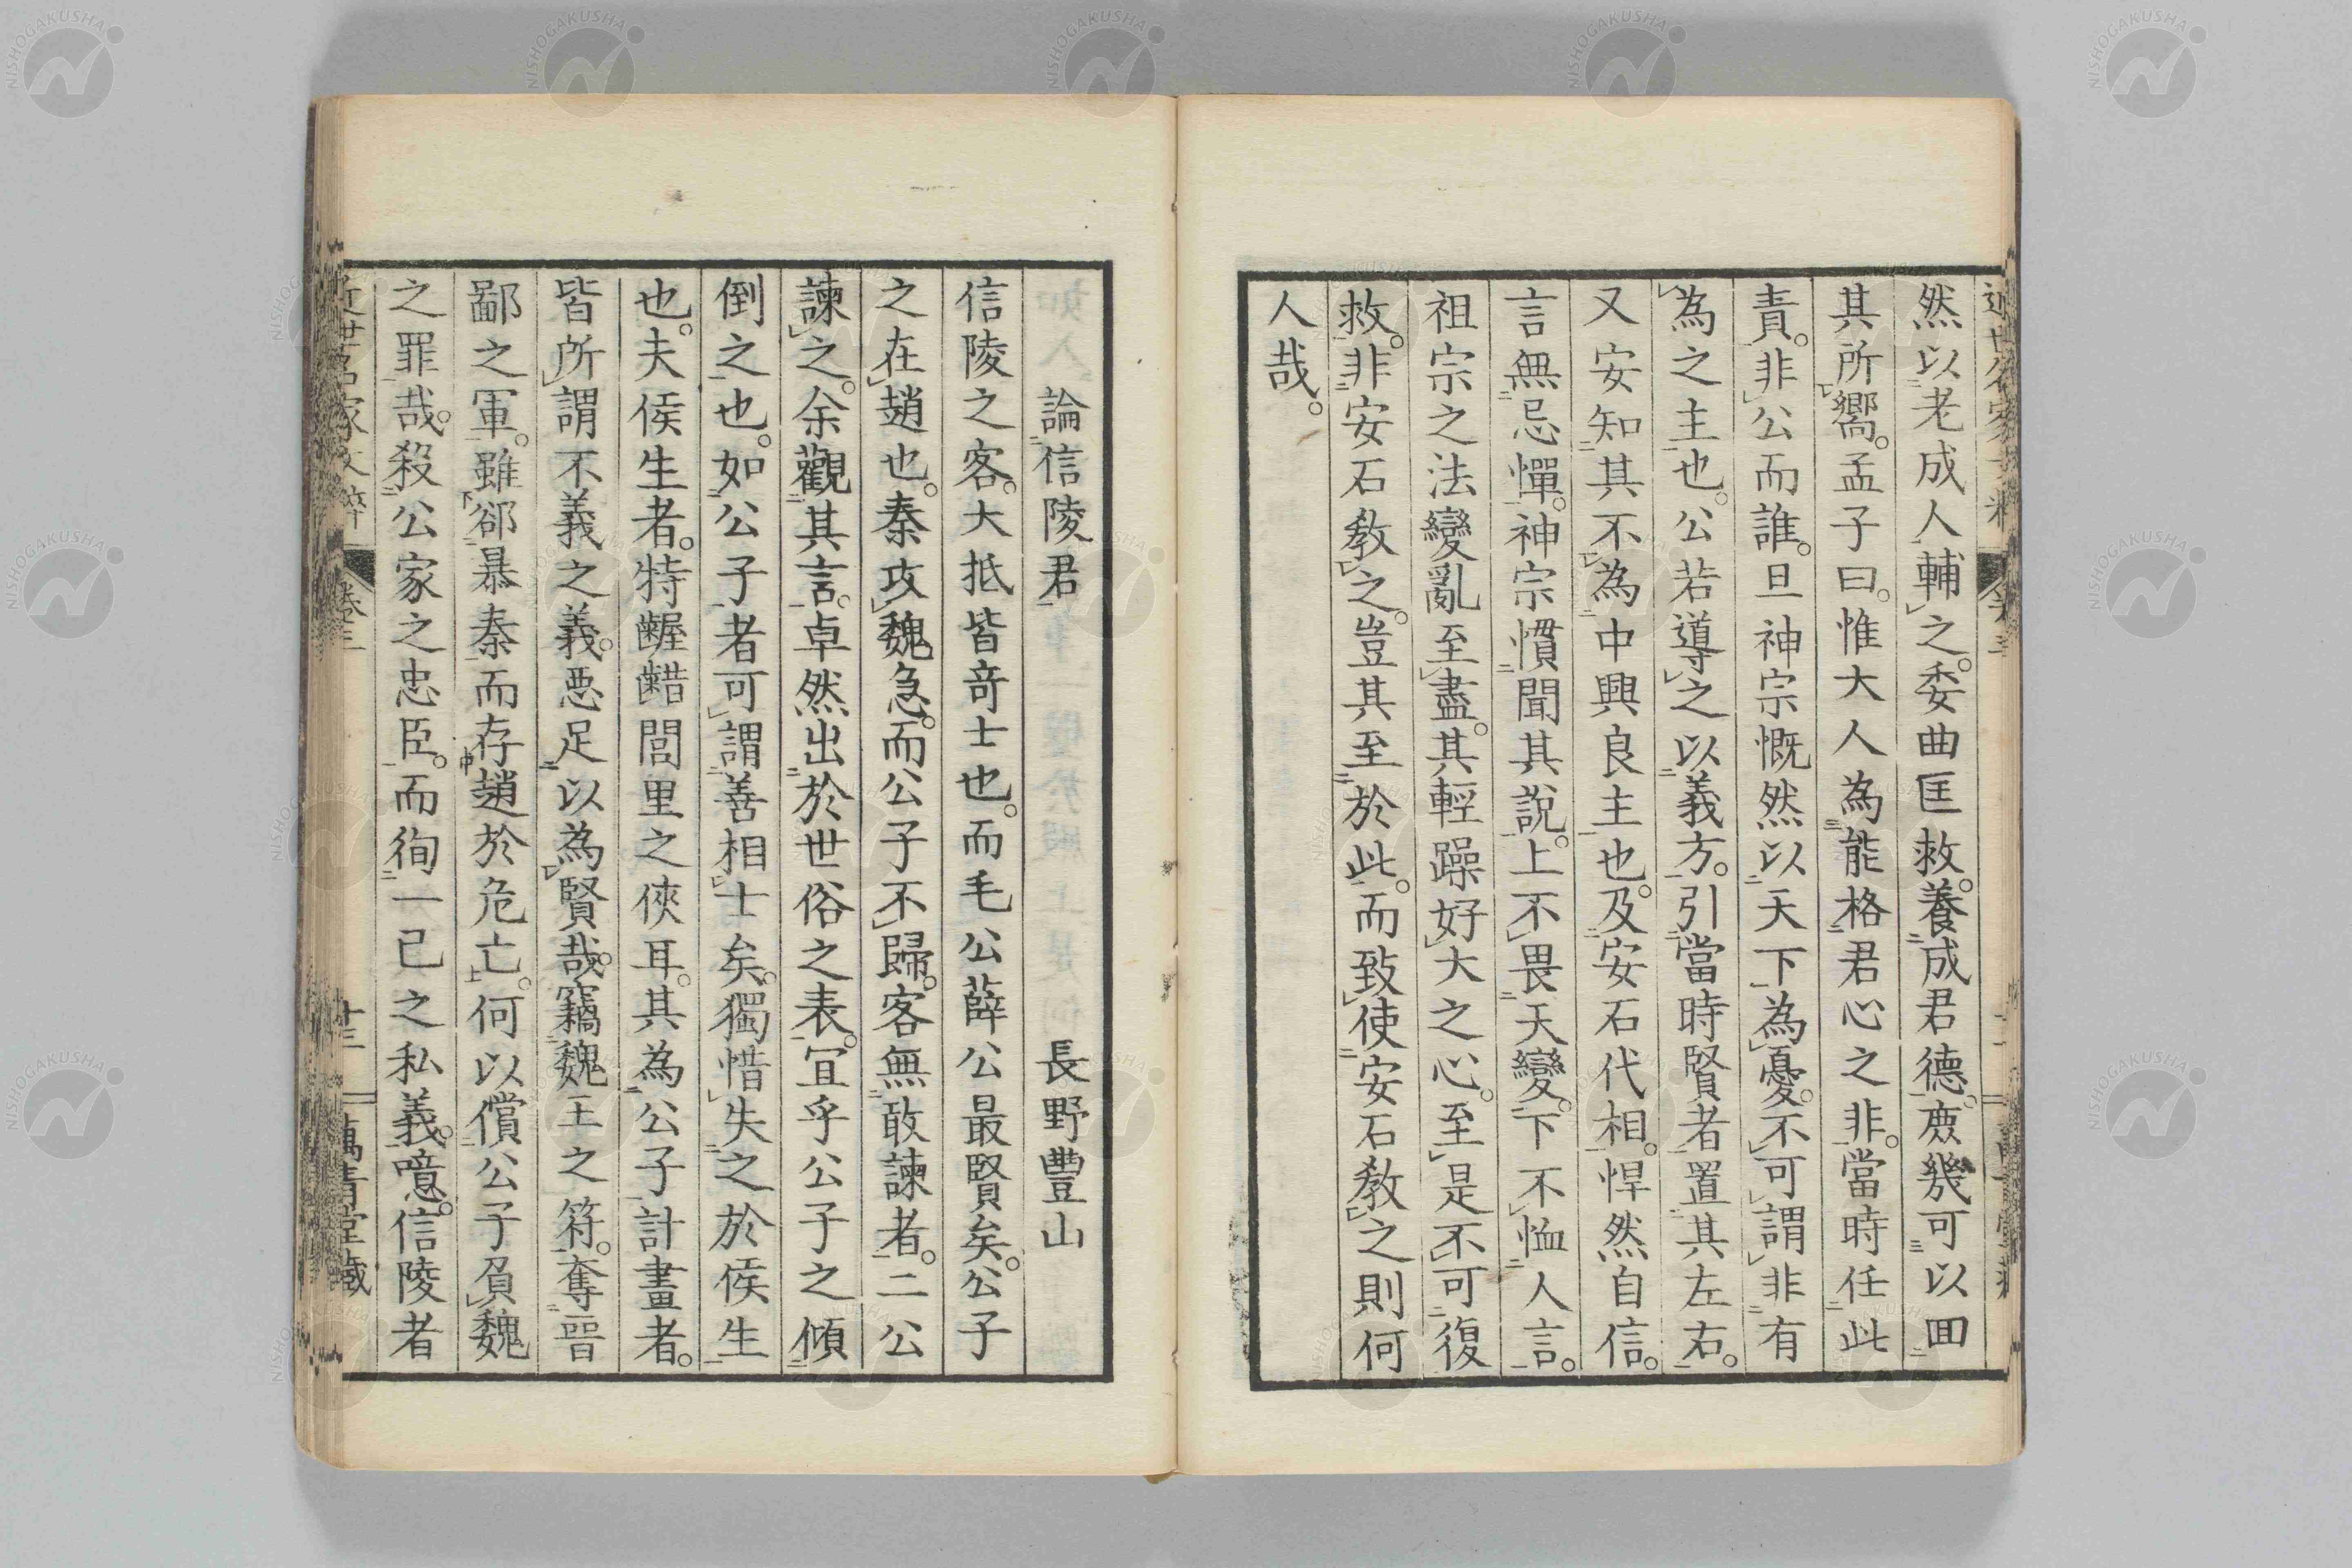 然以老成人輔之。委曲匡救。養成君德。庶幾可以回
其所嚮。孟子曰。惟大人為能格君心之非。當時任此
責。非公而誰。且神宗慨然以天下為憂。不可謂非有
為之主也。公若導之以義方。引當時賢者置其左右。
又安知其不為中興良主也。及安石代相。悍然自信。
言無忌憚。神宗慣聞其說。上不畏天變。下不恤人言。
祖宗之法變亂至盡。其輕躁好大之心。至是不可復
救。非安石教之。豈其至於此。而致使安石教之則何
人哉。
論信陵君 長野豐山
信陵之客。大抵皆奇士也。而毛公薛公最賢矣。公子
之在趙也。秦攻魏急。而公子不歸。客無敢諫者。二公
諫之。余觀其言。卓然出於世俗之表。宜乎公子之傾
倒之也。如公子者可謂善相士矣。獨惜失之於侯生
也。夫侯生者。特齷齪閭里之俠耳。其為公子計畫者。
皆所謂不義之義。惡足以為賢哉。竊魏王之符。奪晉
鄙之軍。雖郤暴秦而存趙於危亡。何以償公子負魏
之罪哉。殺公家之忠臣。而徇一己之私義。噫。信陵者
近世名家文粹 卷三 十三 萬青堂藏